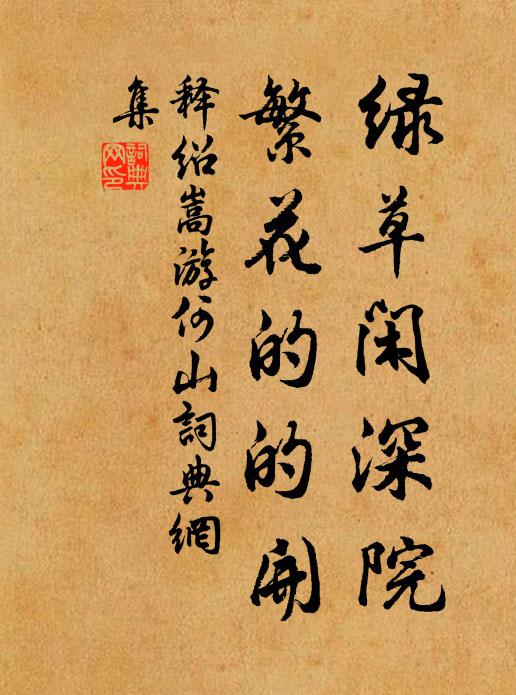 绿草闲深院
繁花的的开
释绍嵩游何山词典網
集
詞典網印